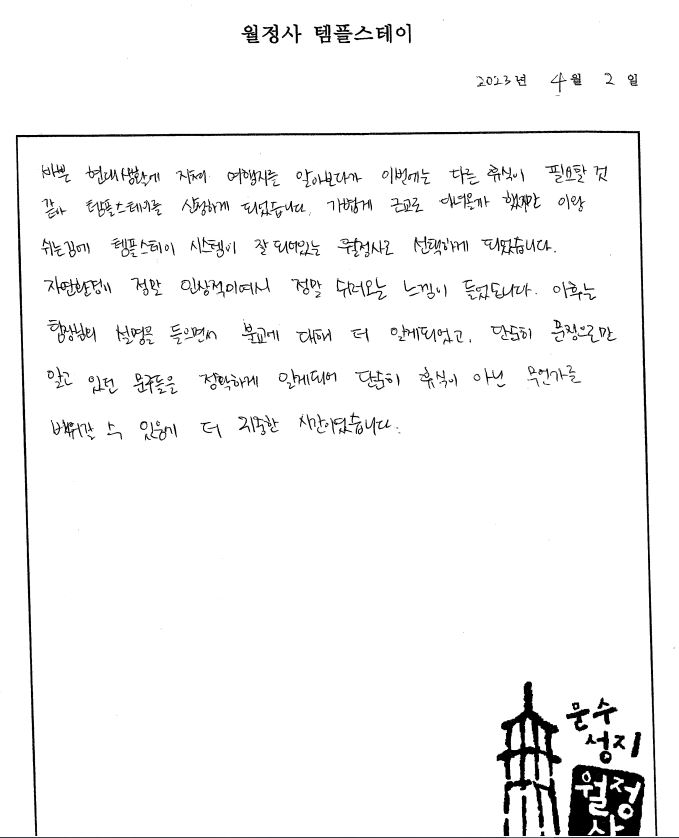 월정사 템플스테이
2023년 4월 2일
바쁜 현대생활에 지쳐 여행지를 알아보다가 이번에는 다른 휴식이 필요할 것
같아 템플스테이를 신청하게 되었습니다. 가볍게 근교로 다녀올까 했지만 이왕
쉬는김에 템플스테이 시스템이 잘 되어있는 월정사로 선택하게 되었습니다.
자연환경이 정말 인상적이여서 정말 쉬러오는 느낌이 들었습니다. 이후는
팀장님의 설명을 들으면서 불교에 대해 더 알게되었고, 단순히 문장으로만
알고 있던 문구들을 정확하게 알게되어 단순히 휴식이 아닌 무언가를
배워갈 수 있었기 더 귀중한 시간이었습니다.
문수
성지
월정
사